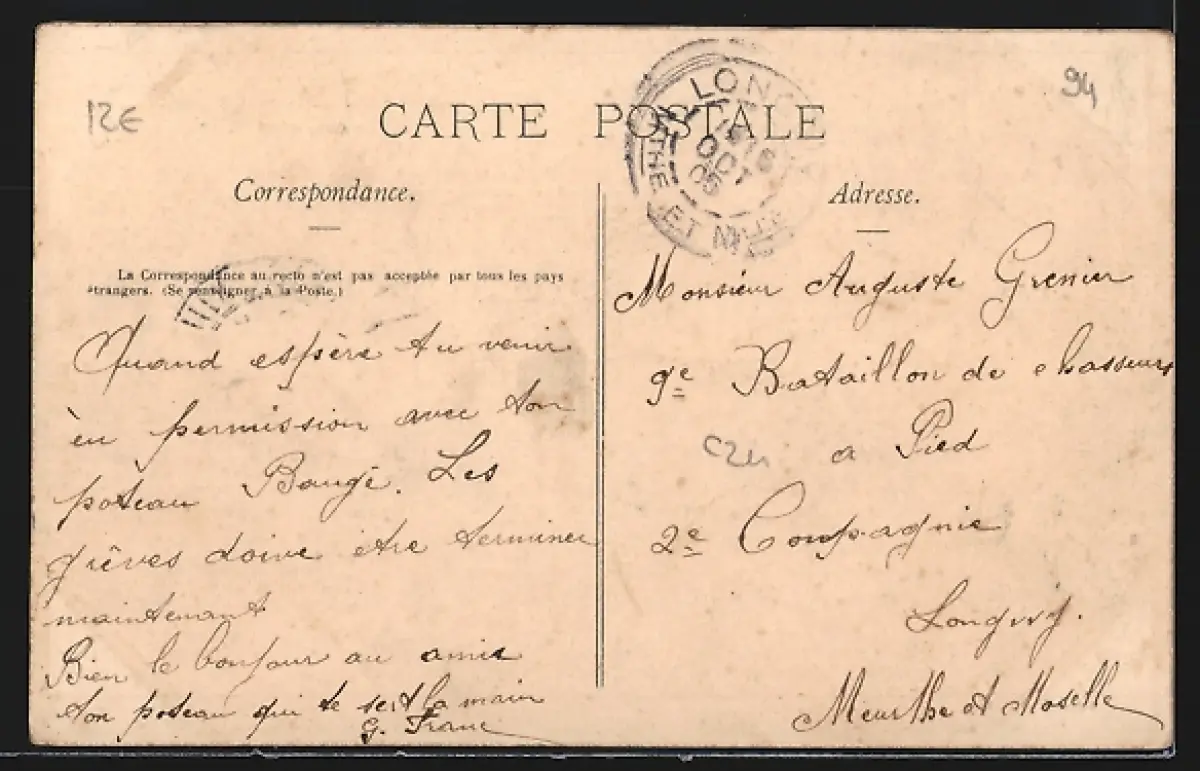 12€
94
CARTE POSTALE
LONG
16
OCT
05
RTHE ET M
Correspondance.
La Correspondance au recto n'est pas acceptée par tous les pays
étrangers. (Se renseigner à la Poste.)
Quand espère tu venir
èn permission avec ton
poteau Baugé. Les
grèves doive être terminer
maintenant
Bien le bonjour au amis
ton poteau qui te sert la main
G. Franc
Adresse.
Monsieur Auguste Grenier
9e Bataillon de chasseurs
a Pied
2e Compagnie
Longwy.
Meurthe et Moselle